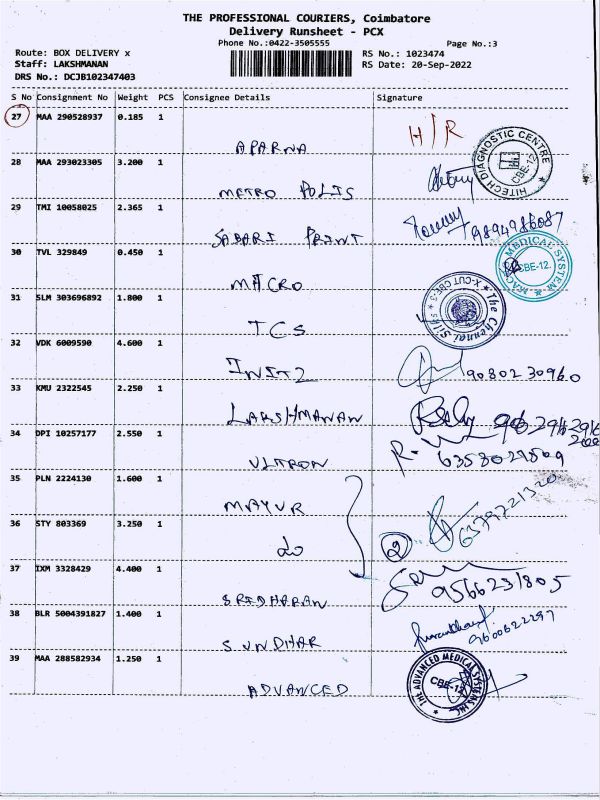 THE PROFESSIONAL COURIERS, Coimbatore
Delivery Runsheet - PCX
Phone No.:0422-3505555 Page No.:3
Route: BOX DELIVERY x RS No.: 1023474
Staff: LAKSHMANAN RS Date: 20-Sep-2022
DRS No.: DCJB102347403
S No Consignment No Weight PCS Consignee Details Signature
27 MAA 290528937 0.185 1 APARNA H/R
HITECH DIAGNOSTIC CENTRE CBE-12
28 MAA 293023305 3.200 1 METRO POLIS
29 TMI 10058025 2.365 1 SABARI PRINT 9894986087
30 TVL 329849 0.450 1 MACRO
MACRO MEDICAL SYSTEM CBE-12.
31 SLM 303696892 1.800 1 TCS
The Chennai Silks X-CUT CBE-3
32 VDK 6009590 4.600 1 INIT2 9080230960
33 KMU 2322545 2.250 1 LAKSHMANAN
34 DPI 10257177 2.550 1 VLTRON 6358029809
35 PLN 2224130 1.600 1 MAYUR
36 STY 803369 3.250 1 do 2 6379721320
37 IXM 3328429 4.400 1 SRIDHARAN 9566231805
38 BLR 5004391827 1.400 1 SUNDHAR 9600622297
39 MAA 288582934 1.250 1 ADVANCED
THE ADVANCED MEDICAL SYSTEMS INC CBE-12